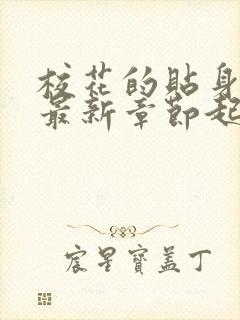 校花的貼身
最新章節起
宸星寶盖丁